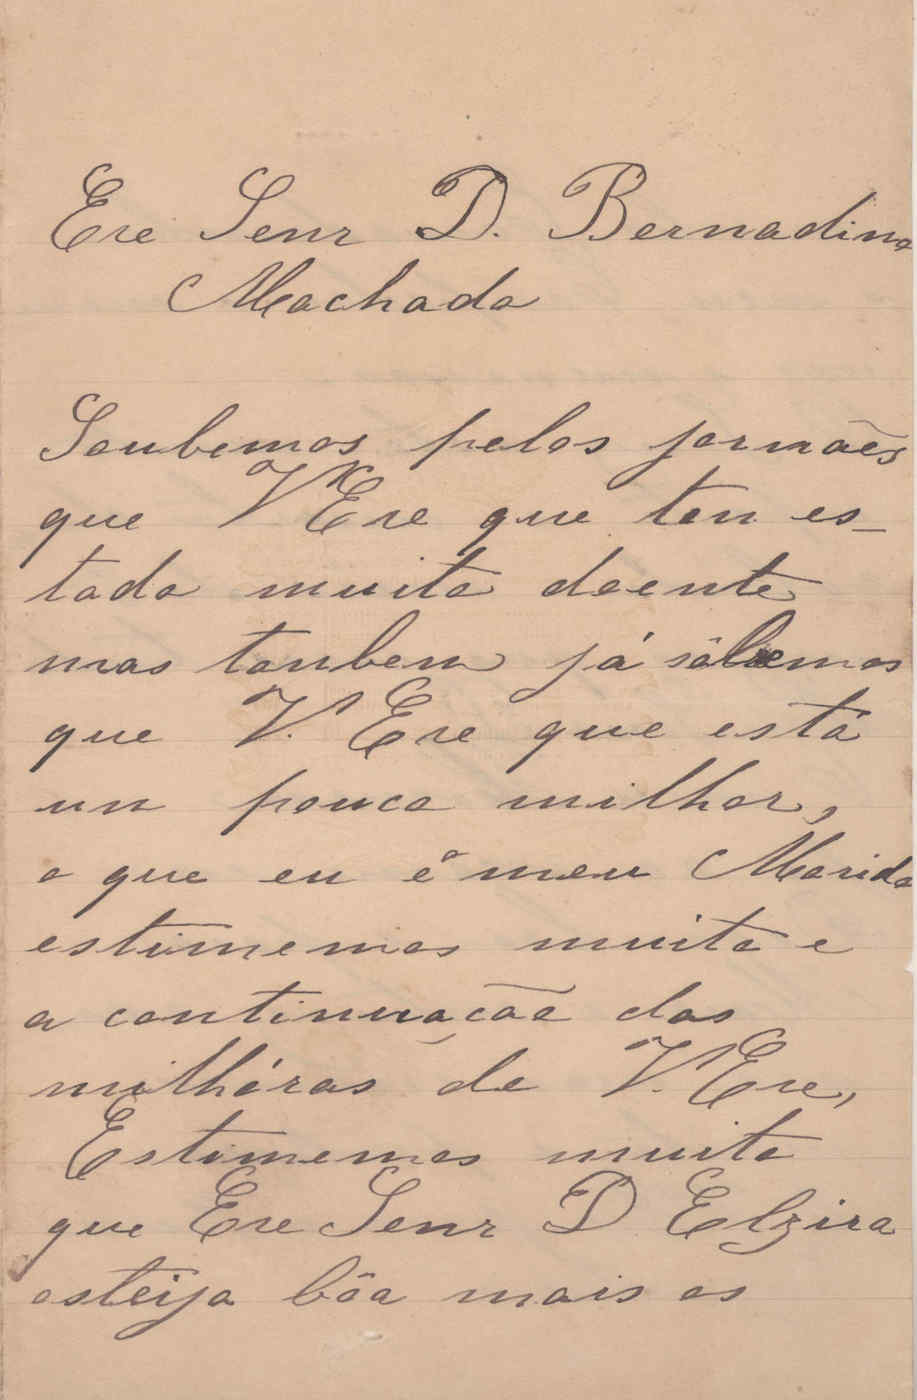 Exe Senr D. Bernadino
Machado
Soubemos pelos jornães
que V Exe que ten es-
tado muito doente
mas tanbem já sâbemos
que V. Exe que está
un pouco milhor,
o que eu e meu Marido
estimemos muito e
a continuação das
milhóras de V. Exe,
Estimemos muito
que Exe Senr D Elzira
esteija bôa mais os